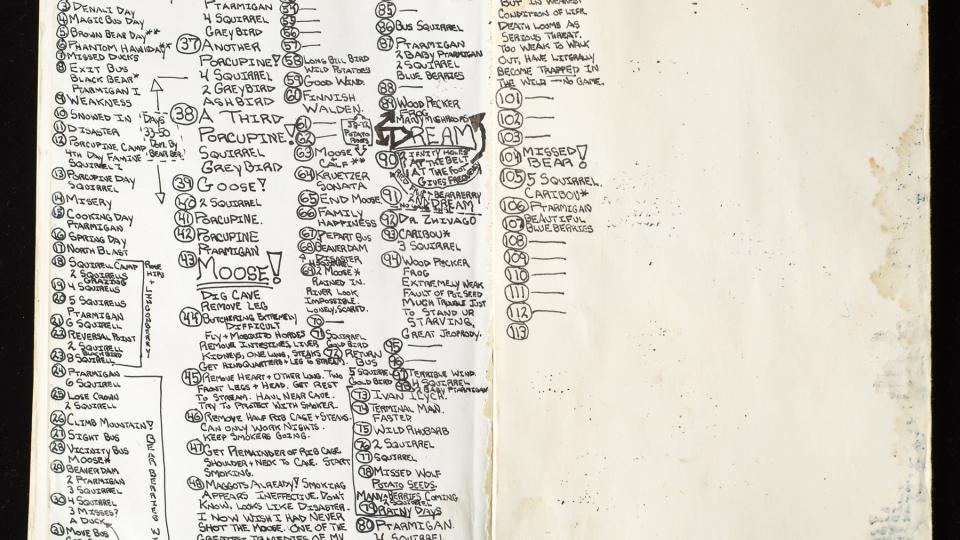 ③ DENALI DAY
④ MAGIC BUS DAY
⑤ BROWN BEAR DAY**
⑥ PHANTOM HAWK DAY**
⑦ MISSED DUCKS
⑧ EXIT BUS
BLACK BEAR*
PTARMIGAN 1
⑨ WEAKNESS
⑩ SNOWED IN
⑪ DISASTER
⑫ PORCUPINE CAMP
4TH DAY FAMINE
SQUIRREL 1
⑬ PORCUPINE DAY
SQUIRREL
⑭ MISERY
⑮ COOKING DAY
PTARMIGAN
⑯ SPRING DAY
⑰ NORTH BLAST
⑱ SQUIRREL CAMP
2 SQUIRRELS
GRAZING
⑲ 4 SQUIRRELS
⑳ 5 SQUIRRELS
PTARMIGAN
㉑ 6 SQUIRRELL
㉒ REVERSAL POINT
2 SQUIRRELL
BLACKBIRD
㉓ 8 SQUIRRELL
㉔ PTARMIGAN
6 SQUIRREL
㉕ LOSE CROWN
2 SQUIRREL
㉖ CLIMB MOUNTAIN!
㉗ SIGHT BUS
㉘ VICINITY BUS
MOOSE*
㉙ BEAVER DAM
2 PTARMIGAN
3 SQUIRREL
㉚ 4 SQUIRREL
3 MISSES?
A DUCK
㉛ MOVE BUS
ROSE
HIPS
+ LINGONBERRY
BEAR BERRIES
DAYS
33-50
PTARMIGAN
4 SQUIRREL
GREY BIRD
㊲ ANOTHER
PORCUPINE!
4 SQUIRREL
2 GREYBIRD
ASHBIRD
㊳ A THIRD
PORCUPINE!
SQUIRREL
GREY BIRD
㊴ GOOSE!
㊵ 2 SQUIRREL
㊶ PORCUPINE.
㊷ PORCUPINE
PTARMIGAN
㊸ MOOSE!
DIG CAVE
REMOVE LEG
㊹ BUTCHERING EXTREMELY
DIFFICULT
FLY + MOSQUITO HORDES
REMOVE INTESTINES, LIVER
KIDNEYS, ONE LUNG, STEAKS
GET HINDQUARTERS + LEG TO STREAM.
㊺ REMOVE HEART + OTHER LUNG. TWO
FRONT LEGS + HEAD. GET REST
TO STREAM. HAUL NEAR CAVE.
TRY TO PROTECT WITH SMOKER.
㊻ REMOVE HALF RIB CAGE + STEAKS.
CAN ONLY WORK NIGHTS.
KEEP SMOKERS GOING.
㊼ GET REMAINDER OF RIB CAGE
SHOULDER + NECK TO CAVE. START
SMOKING.
㊽ MAGGOTS ALREADY! SMOKING
APPEARS INEFFECTIVE. DON'T
KNOW, LOOKS LIKE DISASTER.
I NOW WISH I HAD NEVER
SHOT THE MOOSE. ONE OF THE
GREATEST TRAGEDIES OF MY
56 ——
57 ——
58 LONG BILL BIRD
WILD POTATOES
59 GOOD WIND.
60 FINNISH
WALDEN.
61 ——
62 ——
POTATO
63 MOOSE
CALF **
64 KRUETZER
SONATA
65 END MOOSE
66 FAMILY
HAPPINESS
67 DEPART BUS
68 BEAVERDAM
DISASTER
69 2 MOOSE*
RAINED IN.
RIVER LOOK
IMPOSSIBLE.
LONELY, SCARED.
70 ——
71 SQUIRREL
GOLD BIRD
72 RETURN
BUS
5 SQUIRREL
GOLD BIRD
73 IVAN ILYCH.
74 TERMINAL MAN.
FASTER
75 WILD RHUBARB
76 2 SQUIRREL
77 SQUIRREL
78 MISSED WOLF
POTATO SEEDS.
MANY BERRIES COMING
2 SQUIRREL
79 RAINY DAYS
80 PTARMIGAN.
4 SQUIRREL
85 ——
86 BUS SQUIRREL
87 PTARMIGAN
2 BABY PTARMIGAN
2 SQUIRREL
BLUE BERRIES
88 ——
89 WOOD PECKER
FROG
MANY MUSHROOMS
DREAM
90
AT THE BELT
AT THE FOOT
91 BEARBERRY
DREAM
92 DR. ZHIVAGO
93 CARIBOU*
3 SQUIRREL
94 WOOD PECKER
FROG
EXTREMELY WEAK
FAULT OF POT. SEED
MUCH TROUBLE JUST
TO STAND UP
STARVING,
GREAT JEOPARDY.
95 ——
96 ——
97 TERRIBLE WIND.
98 4 SQUIRREL
2 BABY PTARMIGAN
BUT IN WEAKEST
CONDITION OF LIFE.
DEATH LOOMS AS
SERIOUS THREAT.
TOO WEAK TO WALK
OUT, HAVE LITERALLY
BECOME TRAPPED IN
THE WILD — NO GAME.
101 ——
102 ——
103 ——
104 MISSED
BEAR!
105 5 SQUIRREL.
CARIBOU*
106 PTARMIGAN
107 BEAUTIFUL
BLUE BERRIES
108 ——
109 ——
110 ——
111 ——
112 ——
113